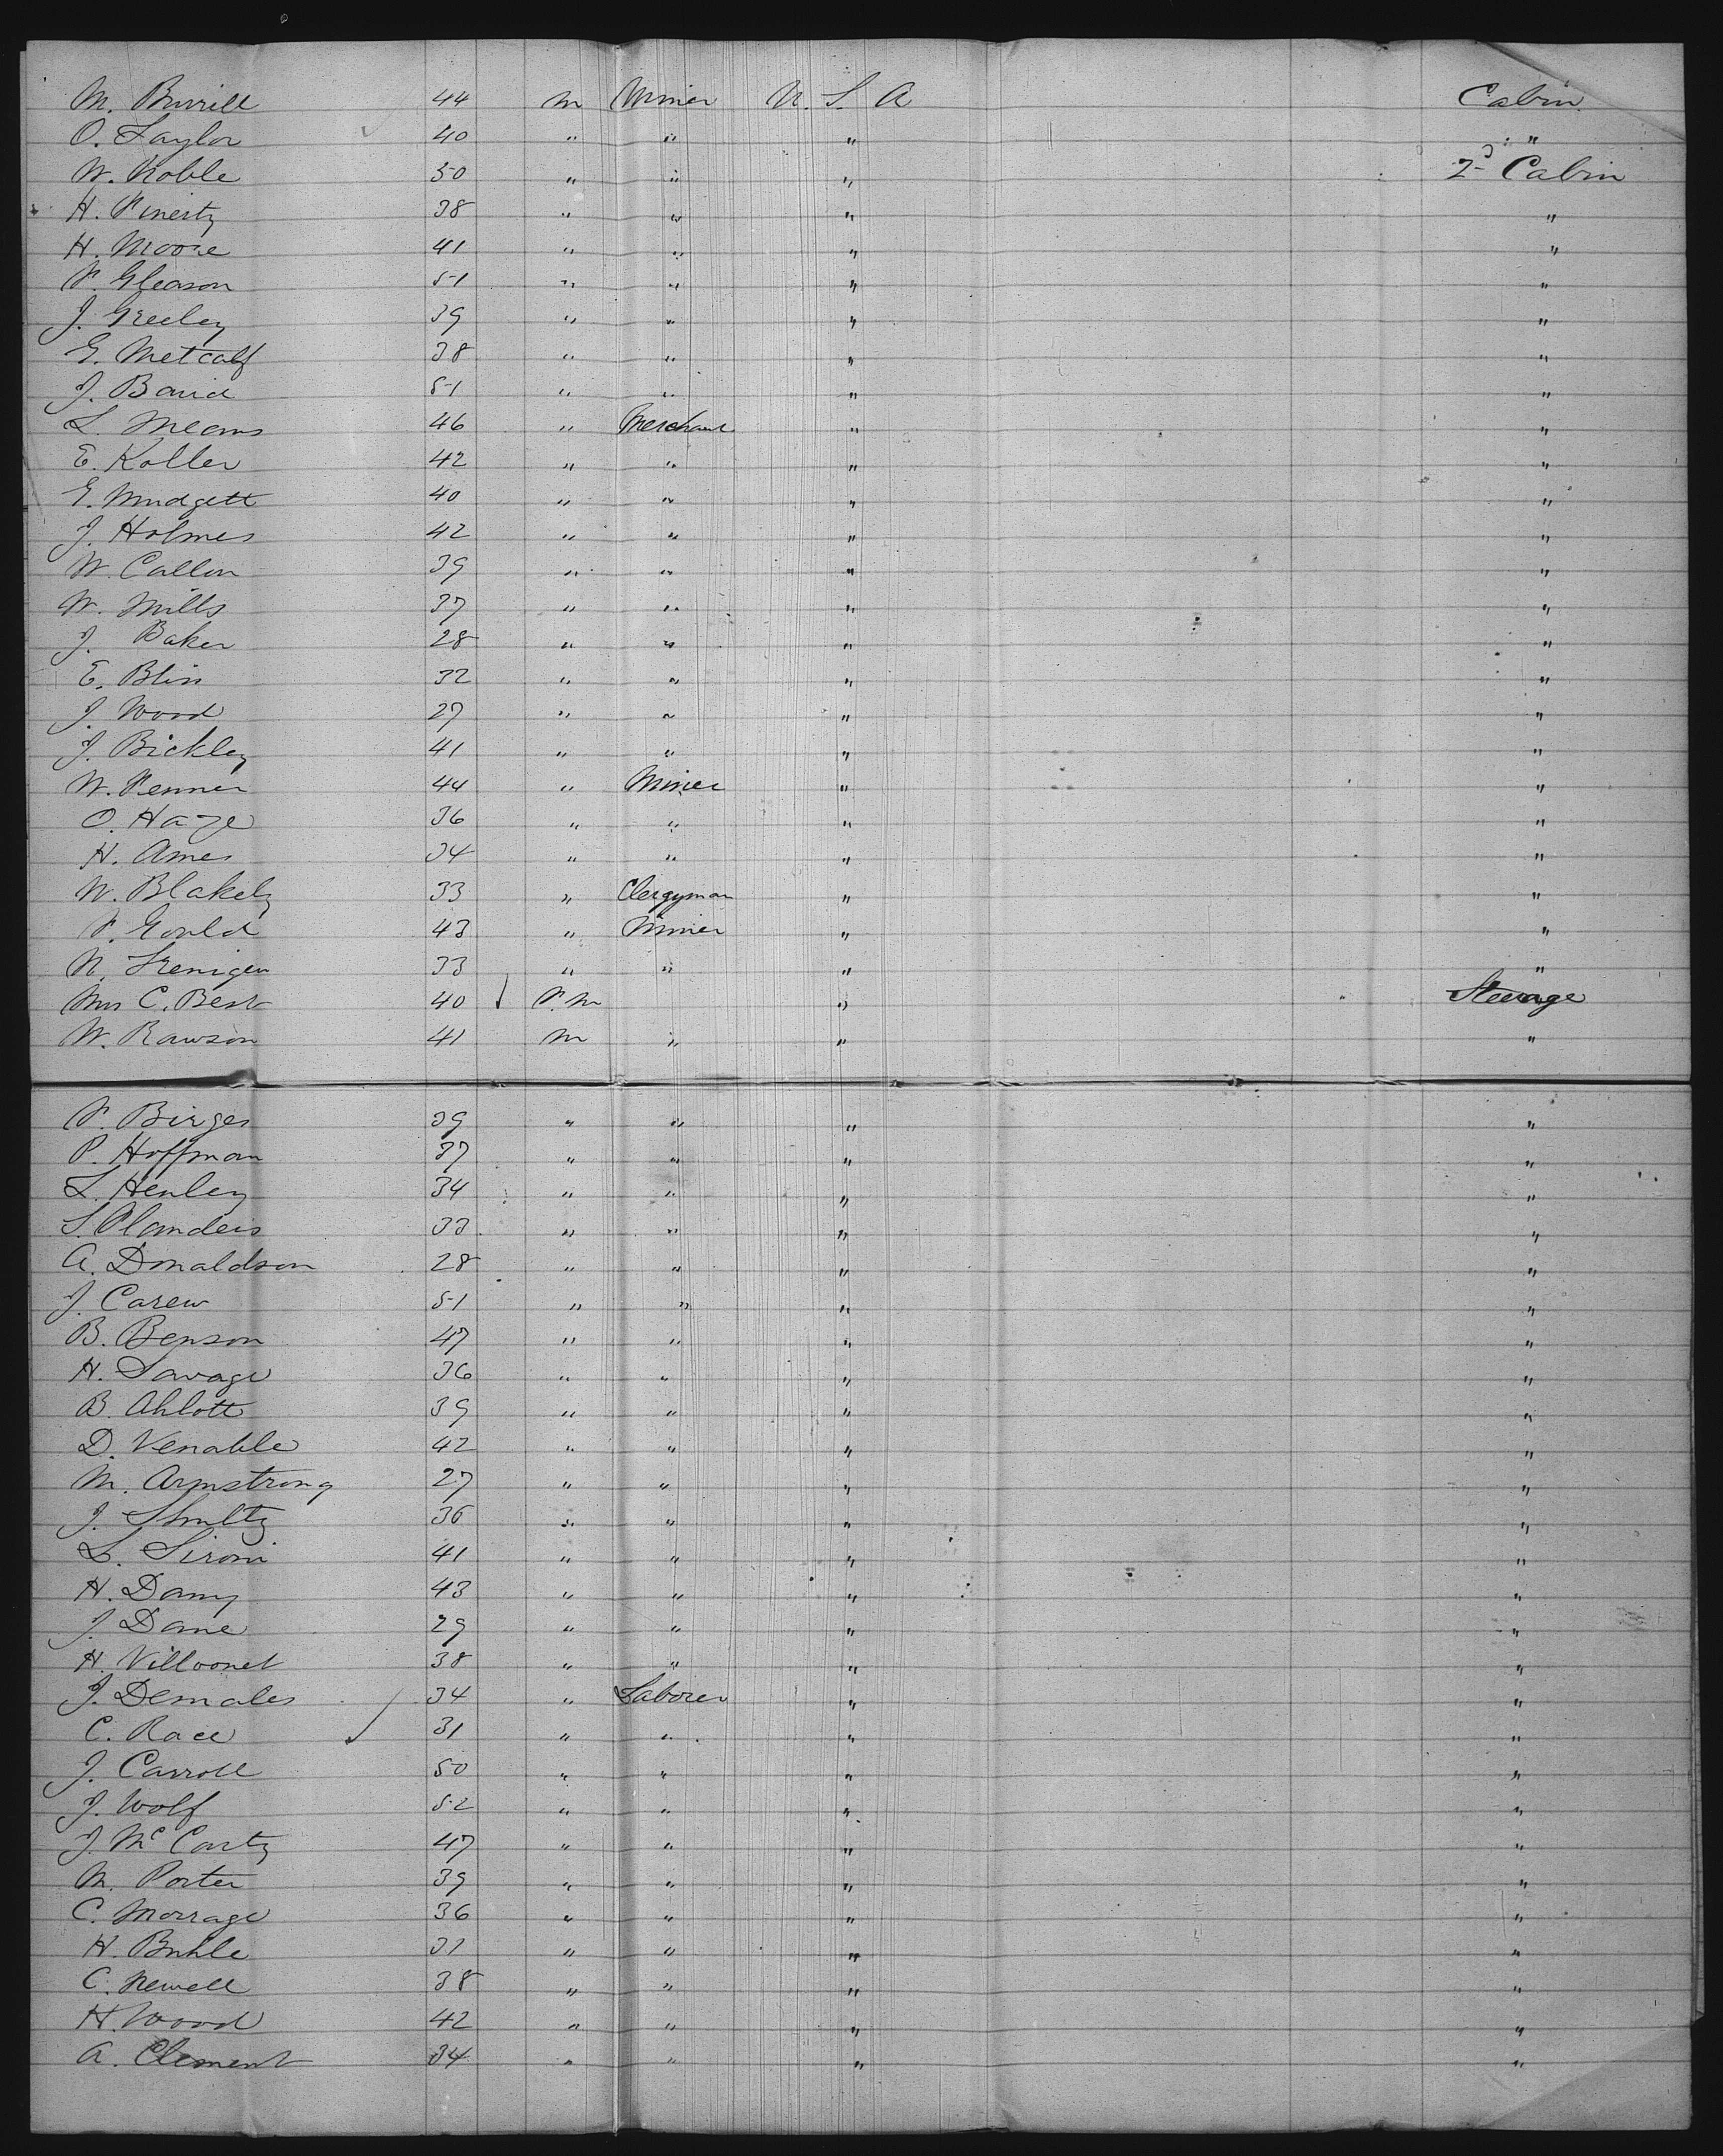 M. Burrill 44 m Miner U. S. A Cabin
O. Taylor 40 " " " "
W. Noble 50 " " " 2d Cabin
H. Finerty 38 " " " "
H. Moore 41 " " " "
F. Gleason 51 " " " "
J. Greeley 39 " " " "
E. Metcalf 38 " " " "
J. Baird 51 " " " "
L. Means 46 " Merchant " "
E. Koller 42 " " " "
E. Mudgett 40 " " " "
J. Holmes 42 " " " "
W. Callon 39 " " " "
W. Mills 37 " " " "
J. Baker 28 " " " "
E. Bliss 32 " " " "
J. Wood 27 " " " "
J. Bickley 41 " " " "
W. Fenner 44 " Miner " "
O. Haze 36 " " " "
H. Ames 34 " " " "
W. Blakely 33 " Clergyman " "
F. Gould 43 " Miner " "
N. 33 " " " "
Mrs C. Best 40 F. m " Steerage
W. Rawson 41 m " " "
F. Birges 39 " " " "
P. Hoffman 37 " " " "
L. Henley 34 " " " "
S. Flanders 33 " " " "
A. Donaldson 28 " " " "
J. Carew 51 " " " "
B. Benson 47 " " " "
H. Savage 36 " " " "
B. Ahlott 39 " " " "
D. Venable 42 " " " "
M. Armstrong 27 " " " "
J. Shultz 36 " " " "
L. Sironi 41 " " " "
H. Damy 43 " " " "
J. Dame 29 " " " "
H. Villoonet 38 " " " "
J. Demales 34 " Laborer " "
C. Race 31 " " " "
J. Carroll 50 " " " "
J. Wolf 52 " " " "
J. McCarty 47 " " " "
M. Porter 39 " " " "
C. Morrage 36 " " " "
H. Buhle 31 " " " "
C. Newell 38 " " " "
H. Wood 42 " " " "
A. Clement 34 " " " "